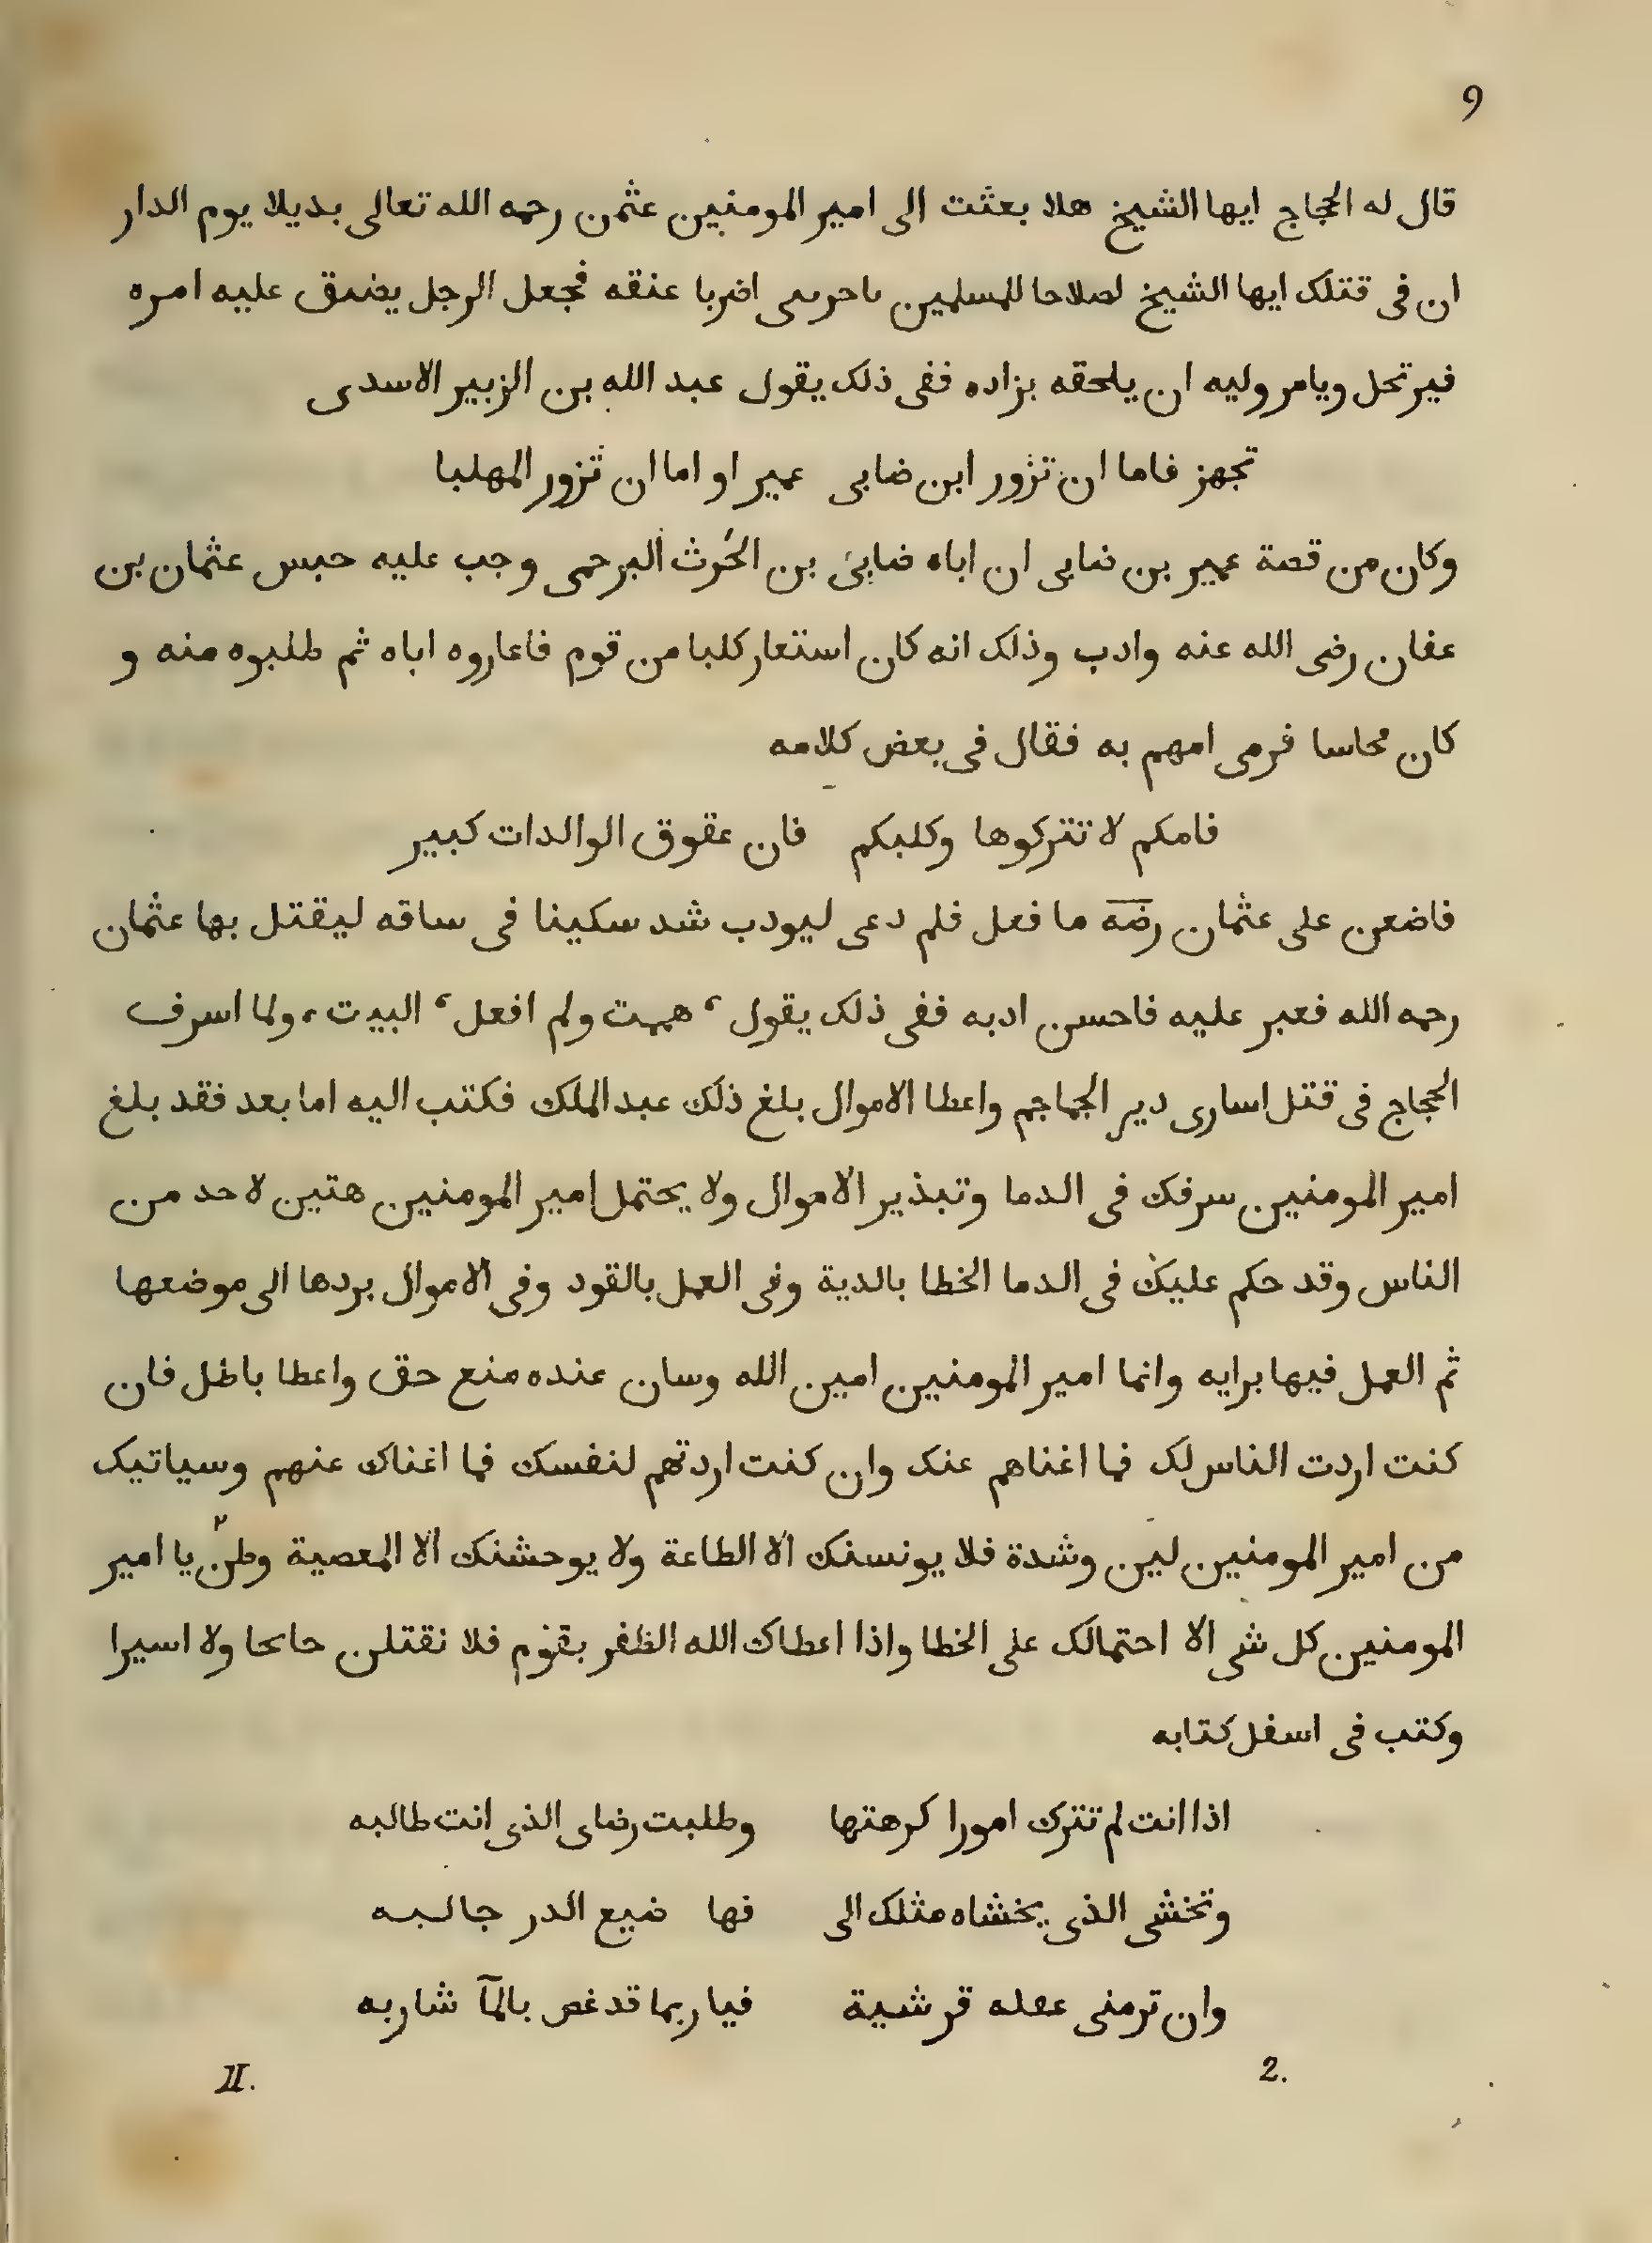 9
قال له الحجاج ايها الشيخ هلا بعثت الى امير المومنين عثمن رحمه الله تعالى بديلا يوم الدار
ان فى قتلك ايها الشيخ لصلاحا للمسلمين اضربا عنقه فجعل الرجل يضيق عليه امره
فيرتحل ويامر وليه ان يلحقه بزاده ففى ذلك يقول عبد الله بن الزبير الاسدى
تجهز فاما ان تزور ابن ضابى عمير او اما ان تزور المهلبا
وكان من قصة عمير بن ضابى ان اباه ضابئ بن الحُرث البرحمى وجب عليه حبس عثمان بن
عفان رضى الله عنه وادب وذلك انه كان استعار كلبا من قوم فاعاروه اباه ثم طلبوه منه و
كان محاسا فرمى امهم به فقال فى بعض كلامه
فامكم لا تتركوها وكلبكم فان عقوق الوالدات كبير
فاضعن على عثمان رضه ما فعل فلم دعى ليودب شد سكينا فى ساقه ليقتل بها عثمان
رحمه الله فعبر عليه فاحسن ادبه ففى ذلك يقول ، هممت ولم افعل ، البيت ، ولما اسرف
الحجاج فى قتل اسارى دير الجماجم واعطا الاموال بلغ ذلك عبد الملك فكتب اليه اما بعد فقد بلغ
امير المومنين سرفك فى الدما وتبذير الاموال ولا يحتمل امير المومنين هتين لاحد من
الناس وقد حكم عليك فى الدما الخطا بالدية وفى العمل بالقود وفى الاموال بردها الى موضعها
ثم العمل فيها برايه وانما امير المومنين امين الله وسان عنده منع حق واعطا باطل فان
كنت اردت الناس لك فما اغناهم عنك وان كنت اردتهم لنفسك فما اغناك عنهم وسياتيك
من امير المومنين لين وشدة فلا يونسنك الا الطاعة ولا يوحشنك الا المعصية وطن يا امير
المومنين كل شى الا احتمالك على الخطا واذا اعطاك الله الظفر بقوم فلا نقتلن حانحا ولا اسيرا
وكتب فى اسفل كتابه
اذا انت لم تترك امورا كرهتها وطلبت رضاى الذى انت طالبه
وتخشى الذى يخشاه مثلك الى فها ضيع الدر جالبه
وان ترمنى عڡله قرشية فيا ربما قد غص بالمآ شاربه
2. II.